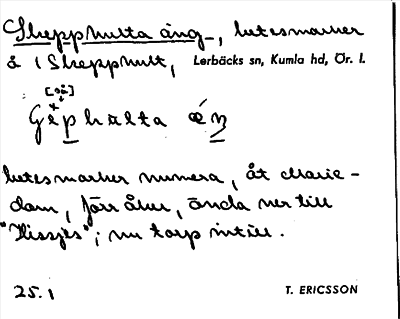 Skepphulta äng, betesmarker
å i Skepphult, Lerbäcks sn, Kumla hd, Ör. l.
[så]
betesmarker numera, åt Marie-
dam, förr åker, ända ner till
"Hissjes"; nu torp intill.
25. 1 T. ERICSSON